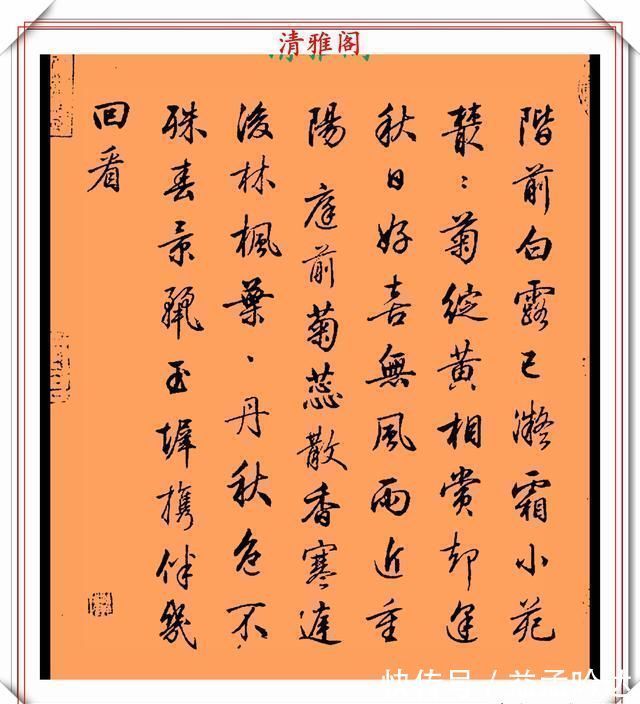 清雅阁
階前白露已凝霜小苑
叢〻菊綻黄相賞却逢
秋日好喜無風雨近重
陽 庭前菊蕊散香寒
後林楓葉〻丹秋色不
殊春景麗玉墀携伴幾
回看
快传号 /